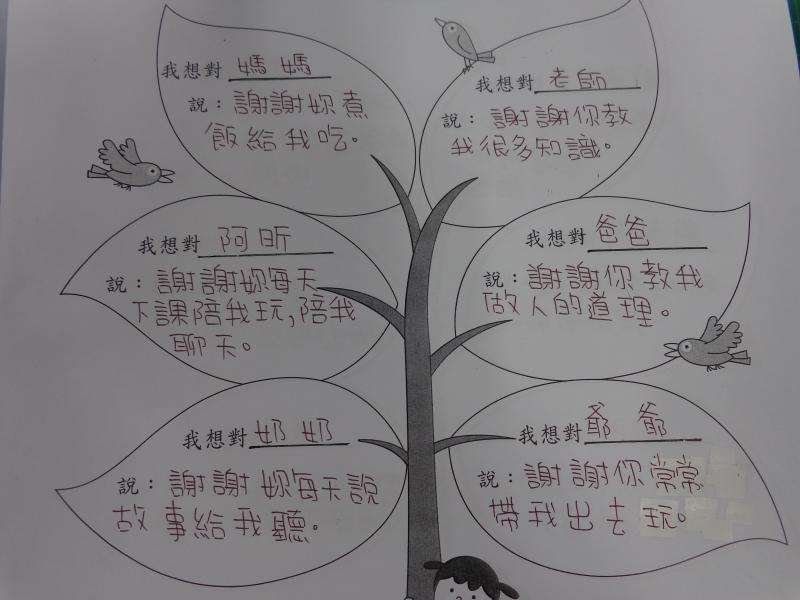 我想對 媽媽
說：謝謝妳煮
飯給我吃。
我想對 老師
說：謝謝你教
我很多知識。
我想對 阿昕
說：謝謝妳每天
下課陪我玩,陪我
聊天。
我想對 爸爸
說：謝謝你教我
做人的道理。
我想對 奶奶
說：謝謝妳每天說
故事給我聽。
我想對 爺爺
說：謝謝你常常
帶我出去玩。